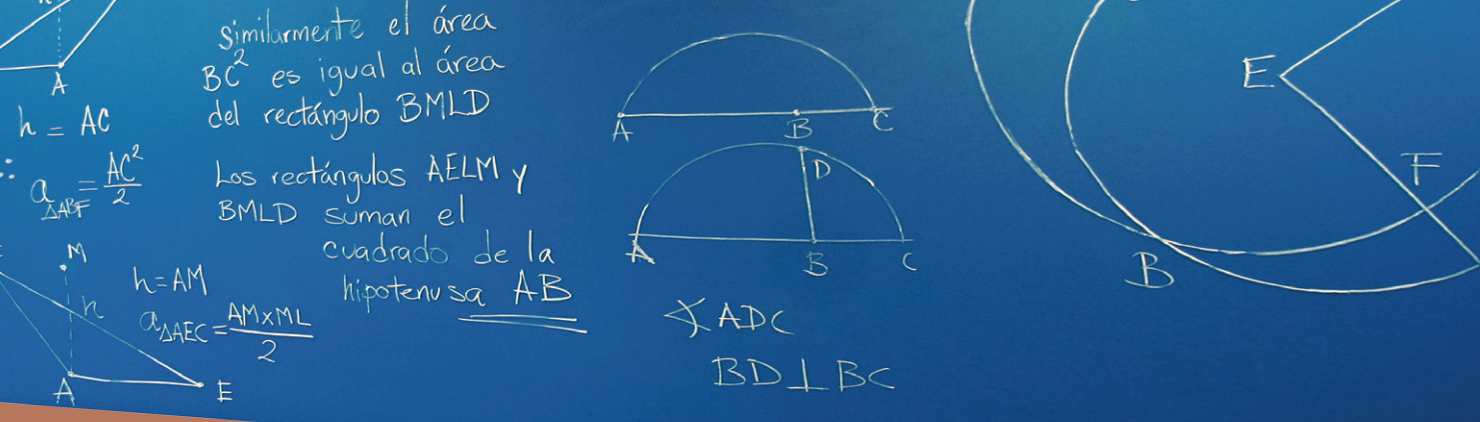 A
h = AC
∴ a△ABF = AC²/2
M
h
h=AM
a△AEC = AM×ML/2
A
E
Similarmente el área
BC² es igual al área
del rectángulo BMLD
Los rectángulos AELM y
BMLD suman el
cuadrado de la
hipotenusa AB
A B C
D
A B C
∢ADC
BD⊥BC
E
F
B